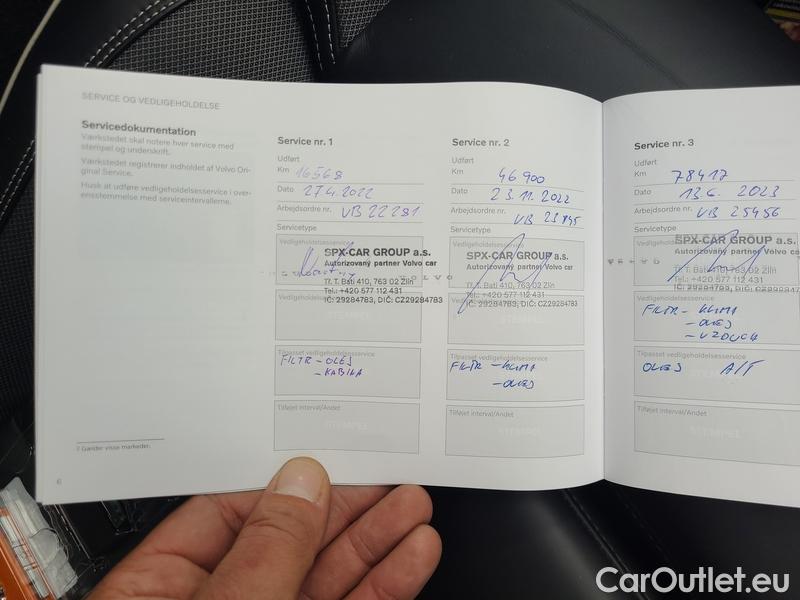 SERVICE OG VEDLIGEHOLDELSE
Servicedokumentation
Værkstedet skal notere hver service med
stempel og underskrift.
Værkstedet registrerer indholdet af Volvo Ori-
ginal Service.
Husk at udføre vedligeholdelsesservice i over-
ensstemmelse med serviceintervallerne.
7 Gælder visse markeder.
6
Service nr. 1
Udført
Km 16568
Dato 27.4.2022
Arbejdsordre nr. VB 22281
Servicetype
Vedligeholdelsesservice
SPX-CAR GROUP a.s.
Autorizovaný partner Volvo car
Tř. T. Bati 410, 763 02 Zlín
Tel.: +420 577 112 431
IČ: 29284783, DIČ: CZ29284783
VOLVO
Tilpasset vedligeholdelsesservice
FILTR - OLEJ
- KABINA
Tilføjet interval/Andet
Service nr. 2
Udført
Km 46 900
Dato 23.11.2022
Arbejdsordre nr. VB
Servicetype
Vedligeholdelsesservice
SPX-CAR GROUP a.s.
Autorizovaný partner Volvo car
Tř. T. Bati 410, 763 02 Zlín
Tel.: +420 577 112 431
IČ: 29284783, DIČ: CZ29284783
STEMPEL
Tilpasset vedligeholdelsesservice
FILTR - KLIMA
- OLEJ
Tilføjet interval/Andet
STEMPEL
Service nr. 3
Udført
Km 78417
Dato 13.6. 2023
Arbejdsordre nr. VB 25456
Servicetype
Vedligeholdelsesservice
SPX-CAR GROUP a.s.
Autorizovaný partner Volvo car
Tř. T. Bati 410, 763 02 Zlín
Tel.: +420 577 112 431
IČ: 29284783, DIČ: CZ2928
VOLVO
FILTR - KLIMA
- OLEJ
- VZDUCH
Tilpasset vedligeholdelsesservice
OLEJ A/T
Tilføjet interval/Andet
STEMPEL
CarOutlet.eu